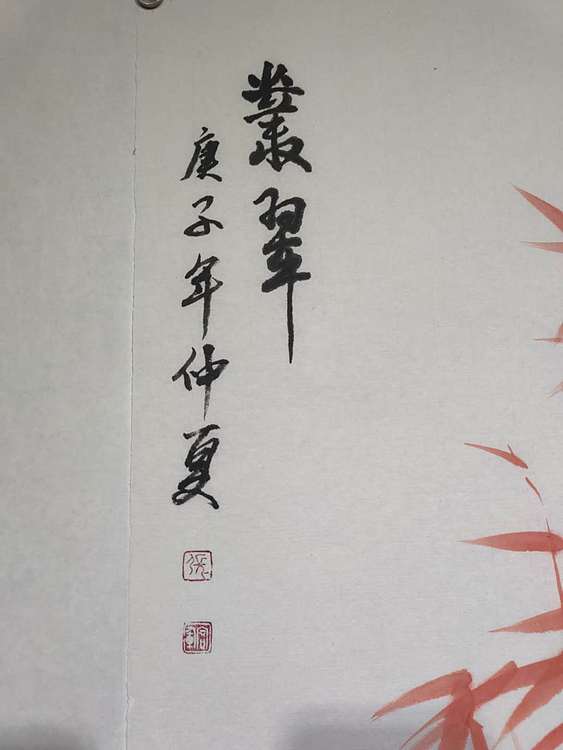 叢翠
庚子年仲夏